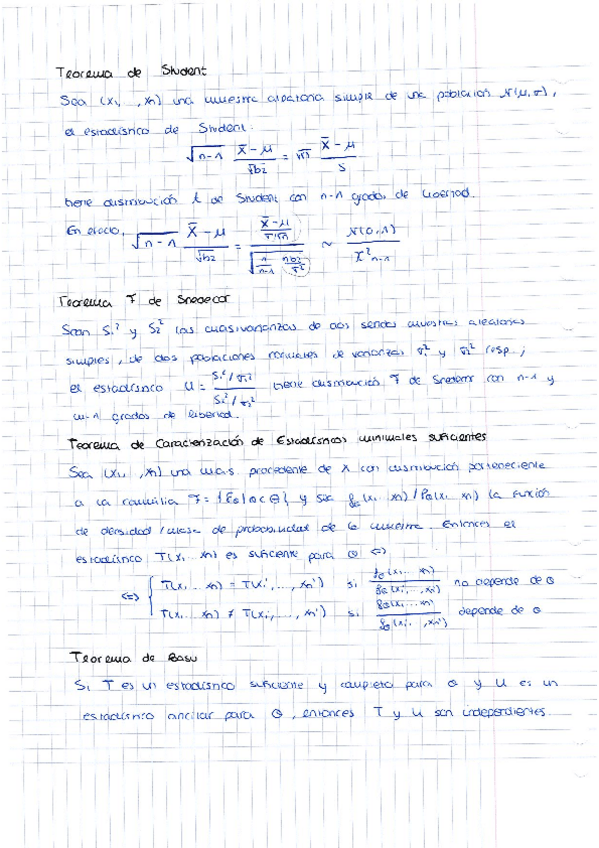 Teorema de Student
Sea (x₁, , xn) una muestra aleatoria simple de una población N(μ,σ),
el estadístico de Student.
√n-1 (X̄-μ)/√b₂ = √n (X̄-μ)/S
tiene distribución t de Student con n-1 grados de libertad.
En efecto, √n-1 (X̄-μ)/√b₂ = ((X̄-μ)/(σ/√n))/√(n/(n-1) nb₂/σ²) ~ N(0,1)/χ²n-1
Teorema F de Snedecor
Sean S₁² y S₂² las cuasivarianzas de dos sendas muestras aleatorias
simples, de dos poblaciones normales de varianzas σ₁² y σ₂² resp;
el estadístico U = (S₁²/σ₁²)/(S₂²/σ₂²) tiene distribución F de Snedecor con n-1 y
m-1 grados de libertad.
Teorema de Caracterización de Estadísticos minimales suficientes
Sea (x₁, , xn) una m.a.s procedente de X con distribución perteneciente
a la familia F = {Fθ | θ ∈ Θ} y sea fθ(x₁ xn) / Pθ(x₁ xn) la función
de densidad / masa de probabilidad de la muestra. Entonces el
estadístico T(x₁ ... xn) es suficiente para θ <=>
<=> { T(x₁ ... xn) = T(x₁', ..., xn') si fθ(x₁ ... xn)/fθ(x₁', ..., xn') no depende de θ
T(x₁ ... xn) ≠ T(x₁', ..., xn') si fθ(x₁ ... xn)/fθ(x₁', ..., xn') depende de θ
Teorema de Basu
Si T es un estadístico suficiente y completo para θ y U es un
estadístico ancilar para θ, entonces T y U son independientes.